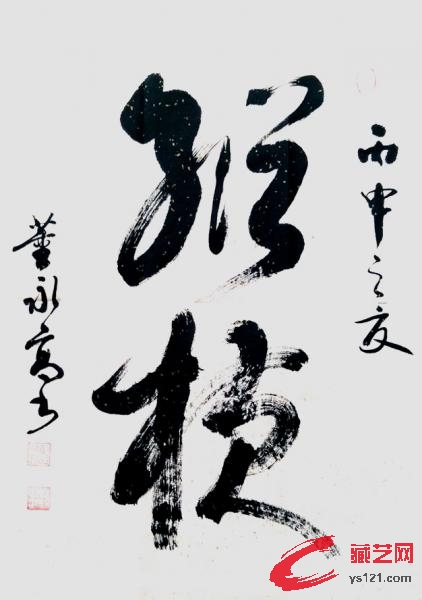 丙申之夏
縱横
董永高书
藏艺网
ys121.com